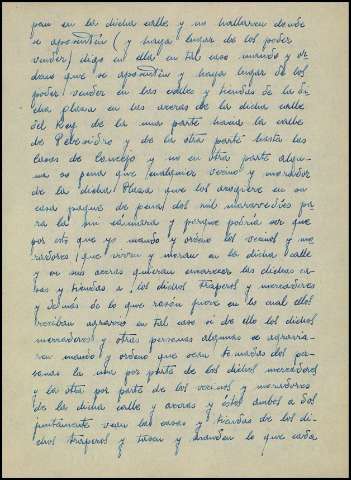 pan en la dicha calle y no hallaren donde
se aposentén (y haya lugar de los poder
vender) digo en ella en tal caso mando y or
deno que se aposentén y haya lugar de los
poder vender en las calles y tiendas de la di
cha plaza en las aceras de la dicha calle
del Rey de la una parte hacia la calle
de y de la otra parte hasta las
casas de Concejo y no en otra parte algu-
na so pena que cualquier vecino y morador
de la dicha Plaza que los acogiere en su
casa pague de pena dos mil maravedíes pa
ra la mi cámara y porque podría ser que
por esto que yo mando y ordeno los vecinos y mo
radores que viven y moran en la dicha calle
y en sus aceras quieran encarecer las dichas ca
sas y tiendas a los dichos traperos y mercaderes
y demás de lo que razón fuere en lo cual ellos
reciban agravio en tal caso si de ello los dichos
mercaderes y otras personas algunas se agravia
ren mando y ordeno que sean tomadas dos pe
sonas la una por parte de los dichos mercaderes
y la otra por parte de los vecinos y moradores
de la dicha calle y aceras y éstos ambos a dos
juntamente vean las casas y tiendas de los di
chos traperos y tasen y manden lo que cada